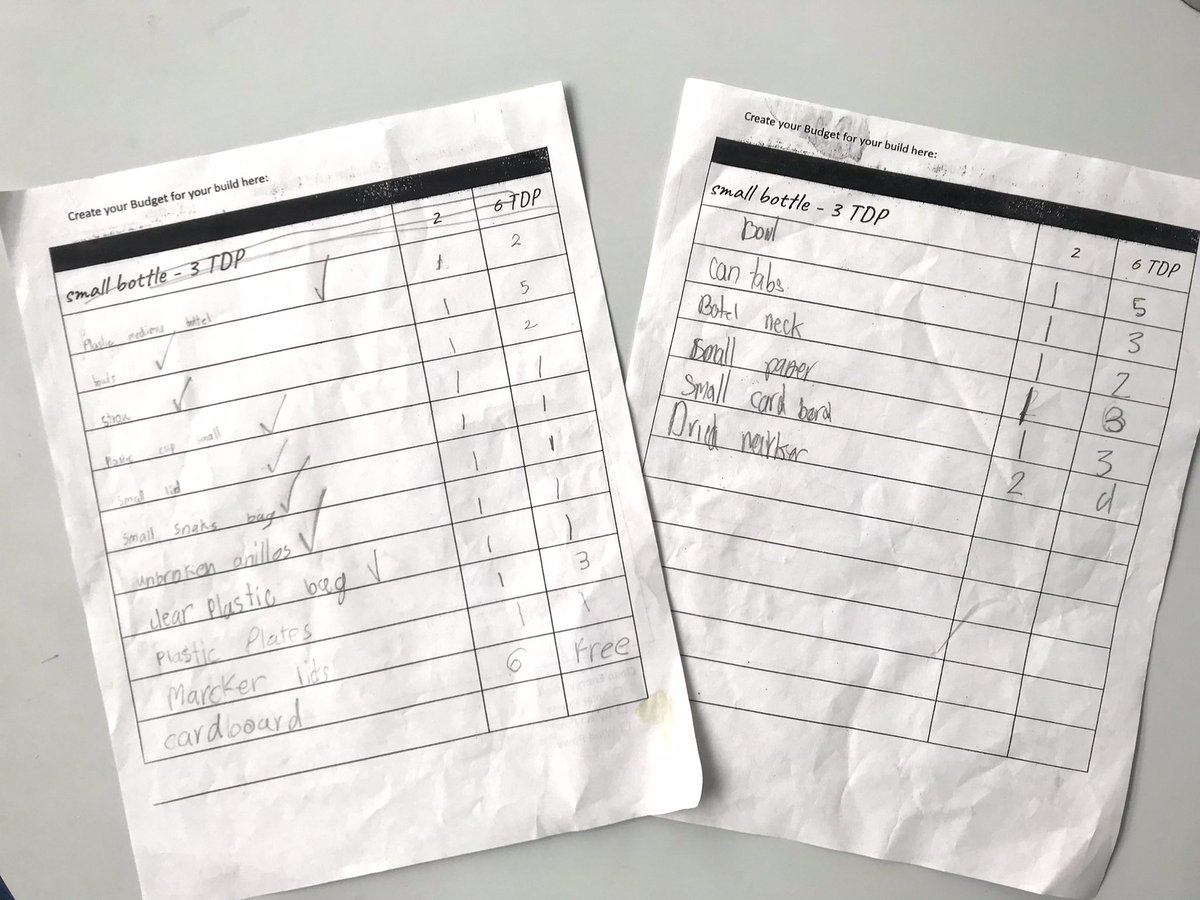 Create your Budget for your build here:
small bottle - 3 TDP 2 6 TDP
Plastic medimu bottel 1 2
bowls 1 5
straw 1 2
Plastic cup small 1 1
Small lid 1 1
small snaks bag 1 1
unbroken anillos 1 1
clear plastic bag 1 1
plastic plates 1 3
Marcker lids 1 1
cardboard 6 free
Create your Budget for your build here:
small bottle - 3 TDP 2 6 TDP
Bowl 1 5
can tabs 1 3
Botel neck 1 2
Small paper 1 3
Small card bord 1 3
Dried 2